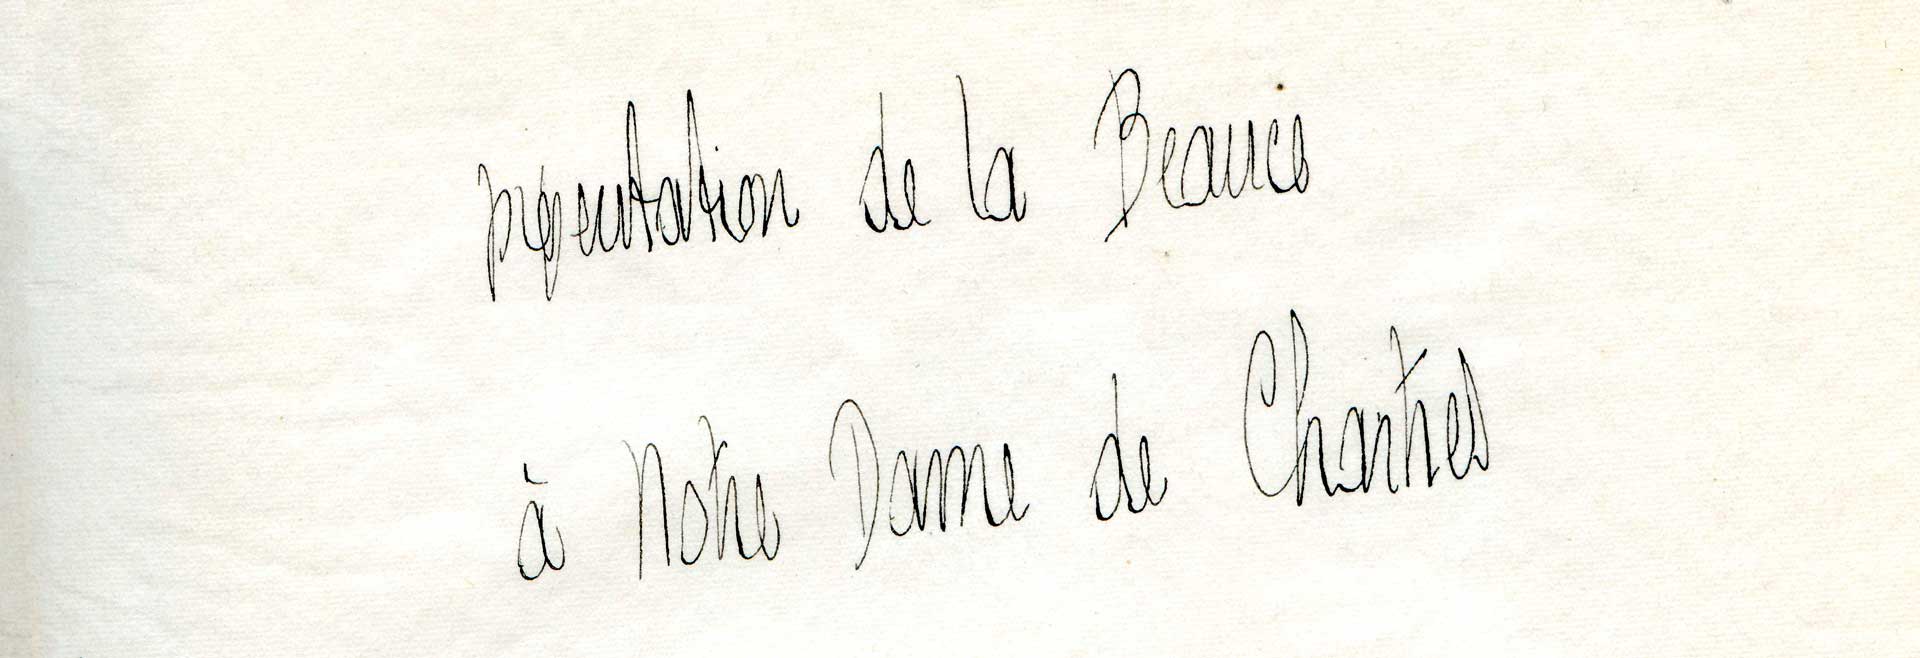 présentation de la Beauce
à Notre Dame de Chartres